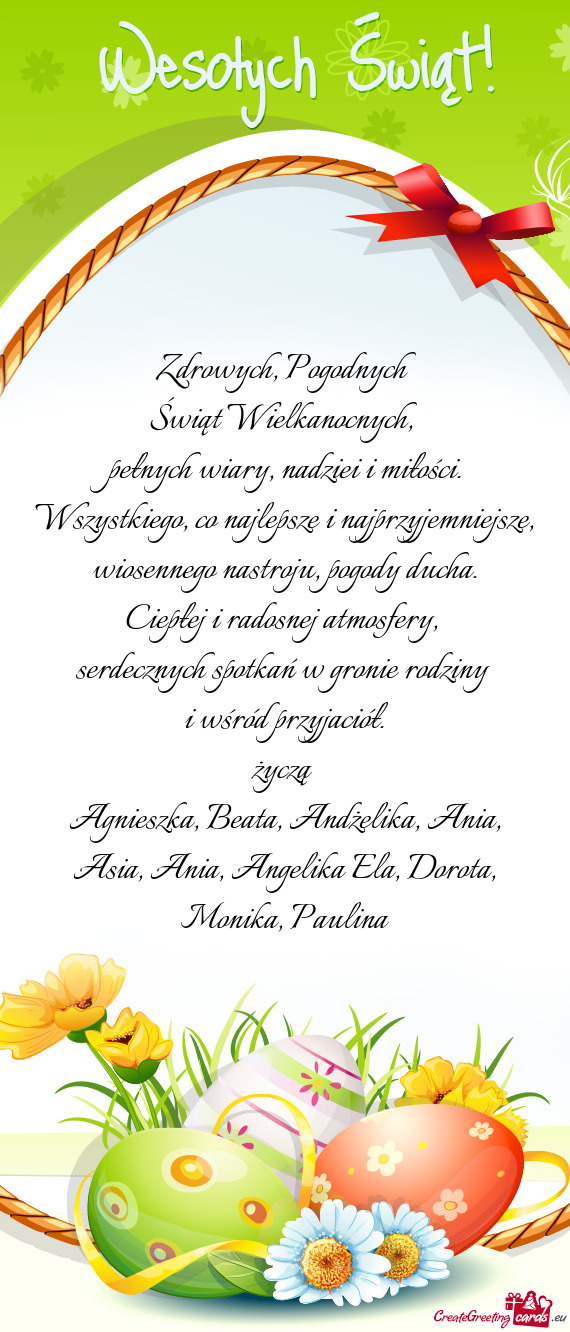 Wesołych Świąt!
Zdrowych, Pogodnych
Świąt Wielkanocnych,
pełnych wiary, nadziei i miłości.
Wszystkiego, co najlepsze i najprzyjemniejsze,
wiosennego nastroju, pogody ducha.
Ciepłej i radosnej atmosfery,
serdecznych spotkań w gronie rodziny
i wśród przyjaciół.
życzą
Agnieszka, Beata, Andżelika, Ania,
Asia, Ania, Angelika Ela, Dorota,
Monika, Paulina
CreateGreeting cards .eu